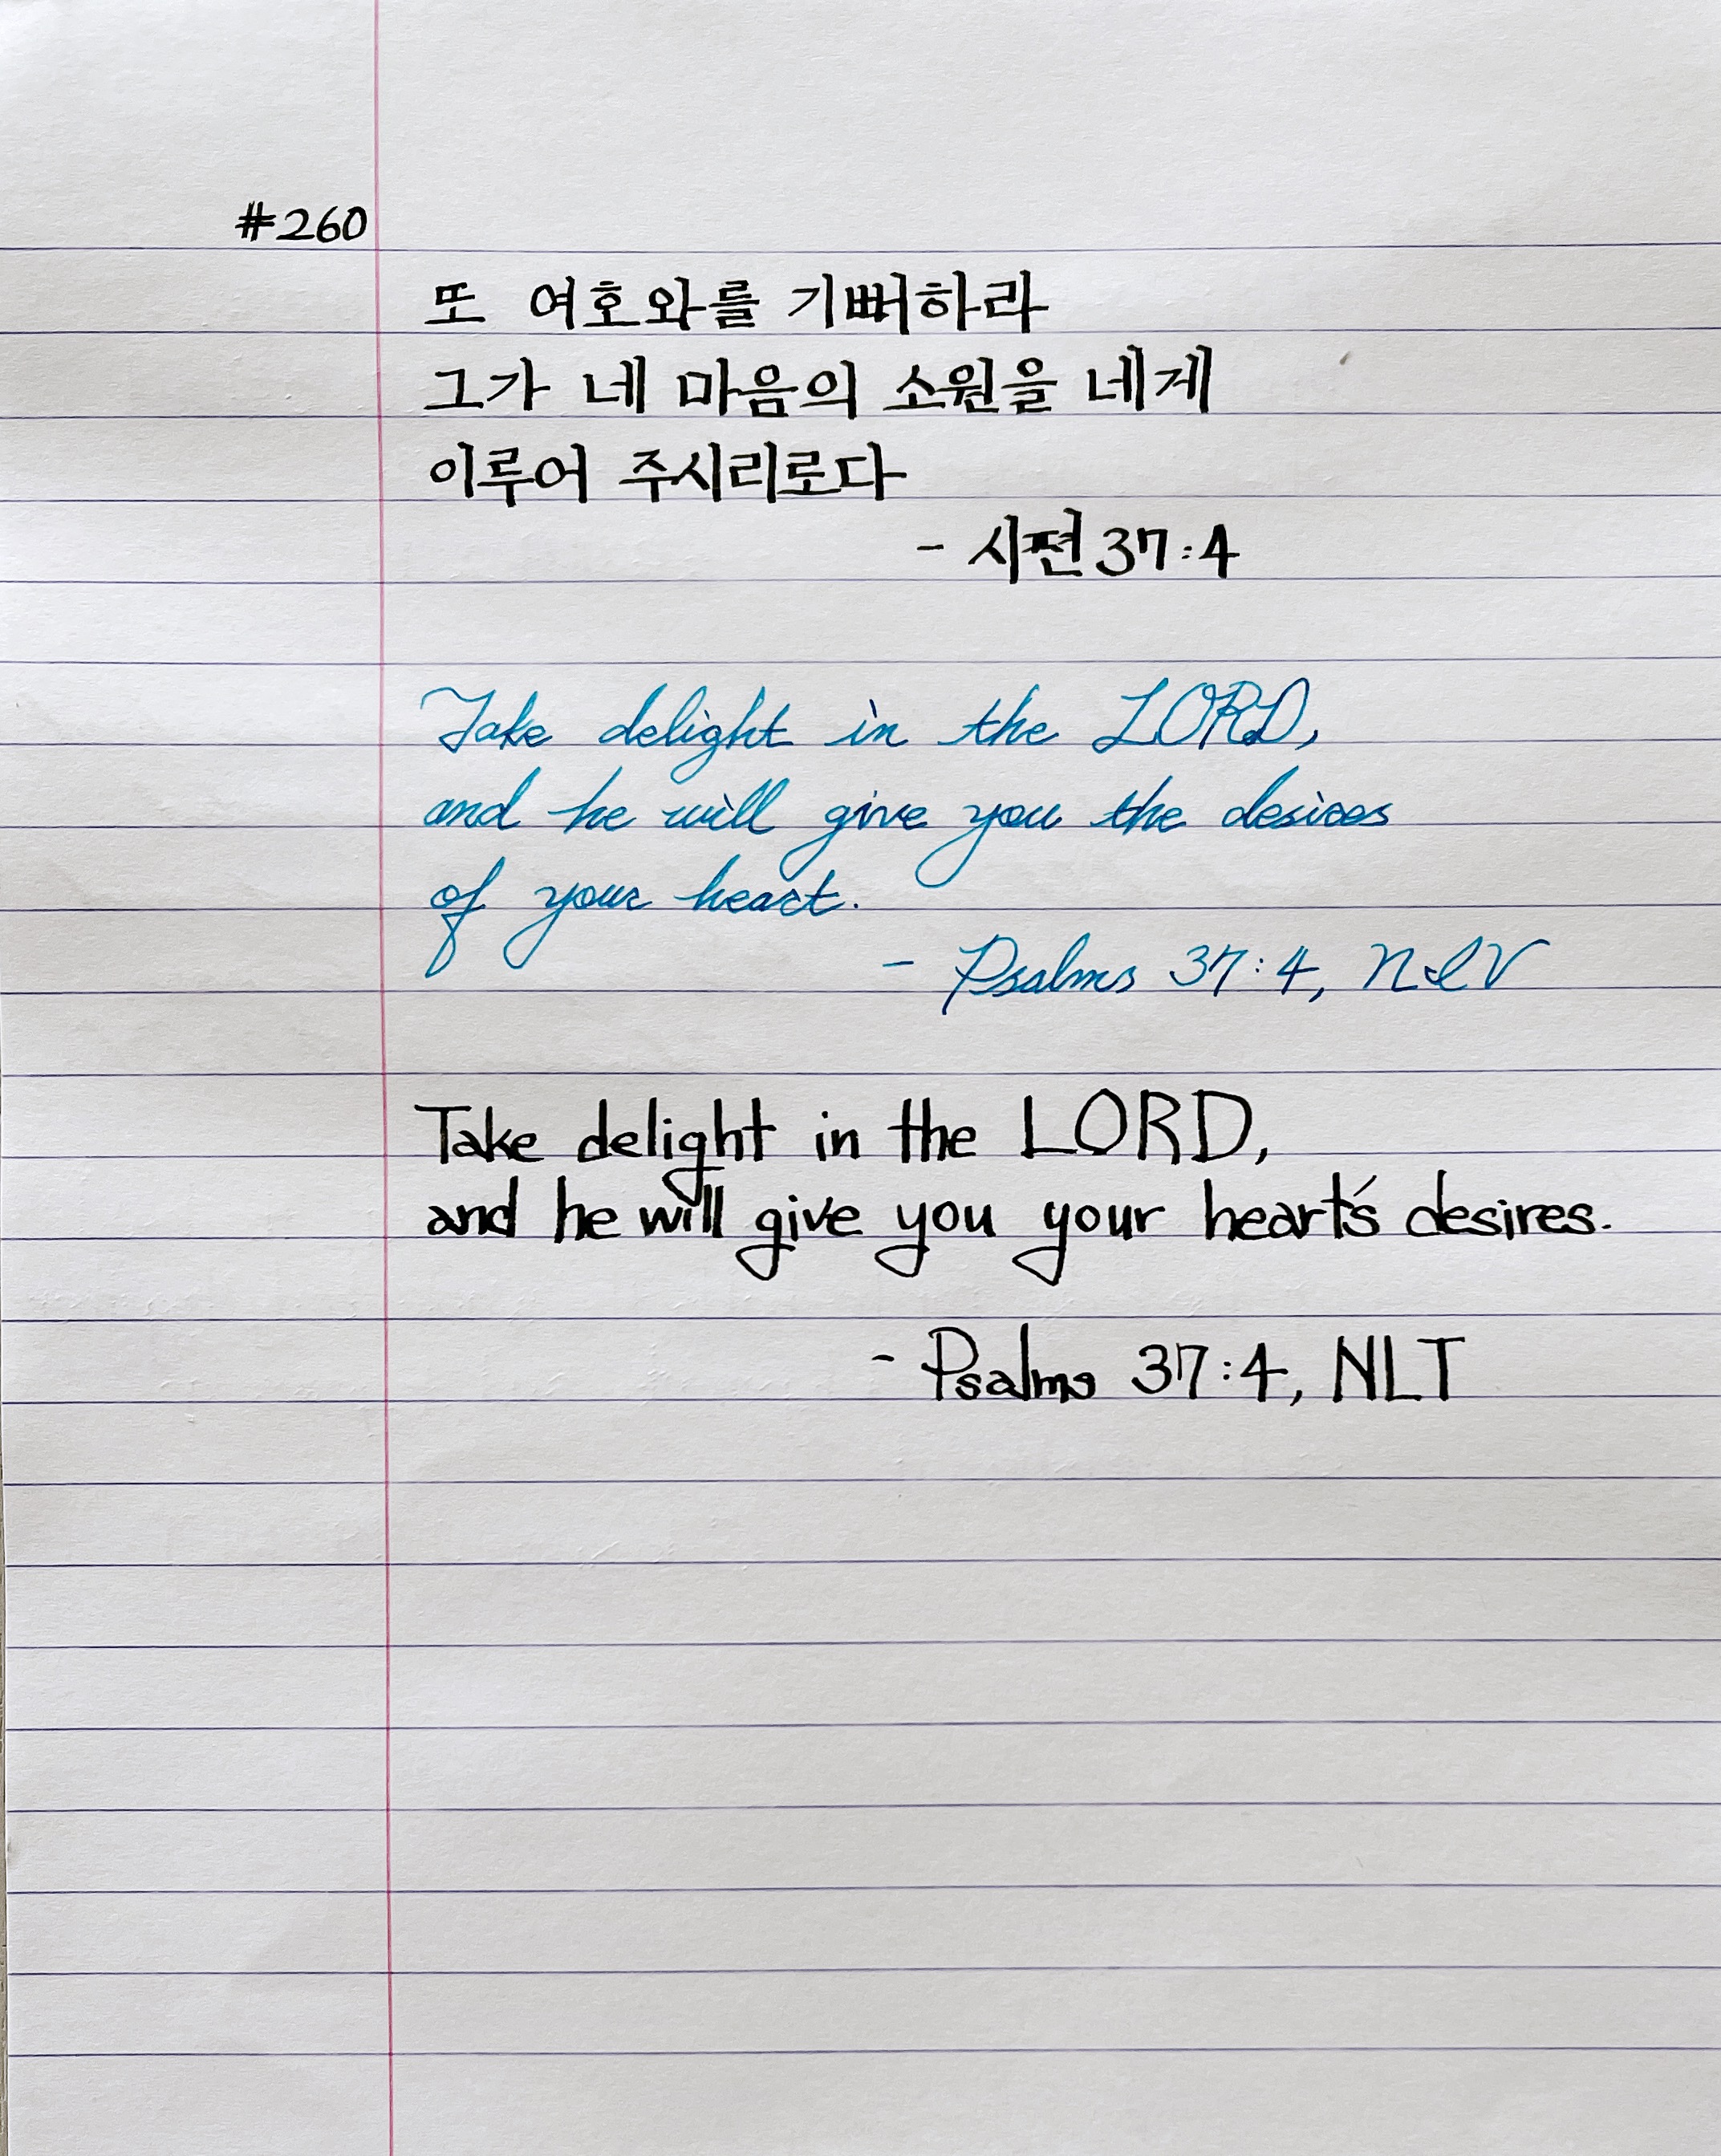 #260
또 여호와를 기뻐하라
그가 네 마음의 소원을 네게
이루어 주시리로다
- 시편 37:4
Take delight in the LORD,
and he will give you the desires
of your heart.
- Psalms 37:4, NIV
Take delight in the LORD,
and he will give you your heart's desires.
- Psalms 37:4, NLT